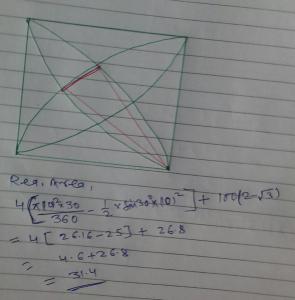 Req. Area,
4[π×10²×30/360 - 1/2 × sin30°×(10)²] + 100(2-√3)
= 4[26.16-25] + 26.8
= 4.6+26.8
= 31.4